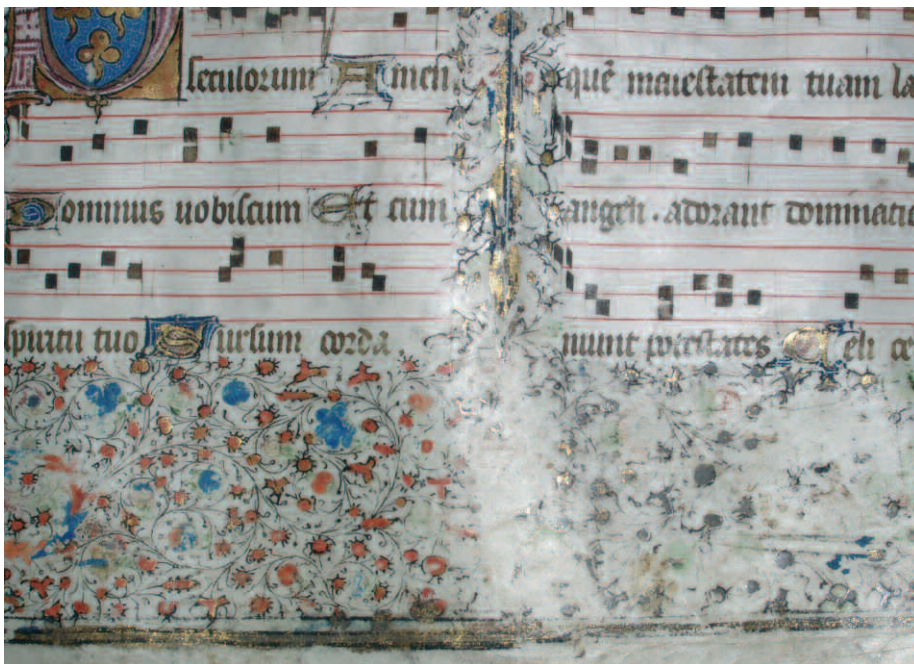 seculorum Amen
Dominus uobiscum Et cum
spiritu tuo Sursum corda
quē maiestatem tuam la
angeli . adorant dominati
munt potestates Celi ce